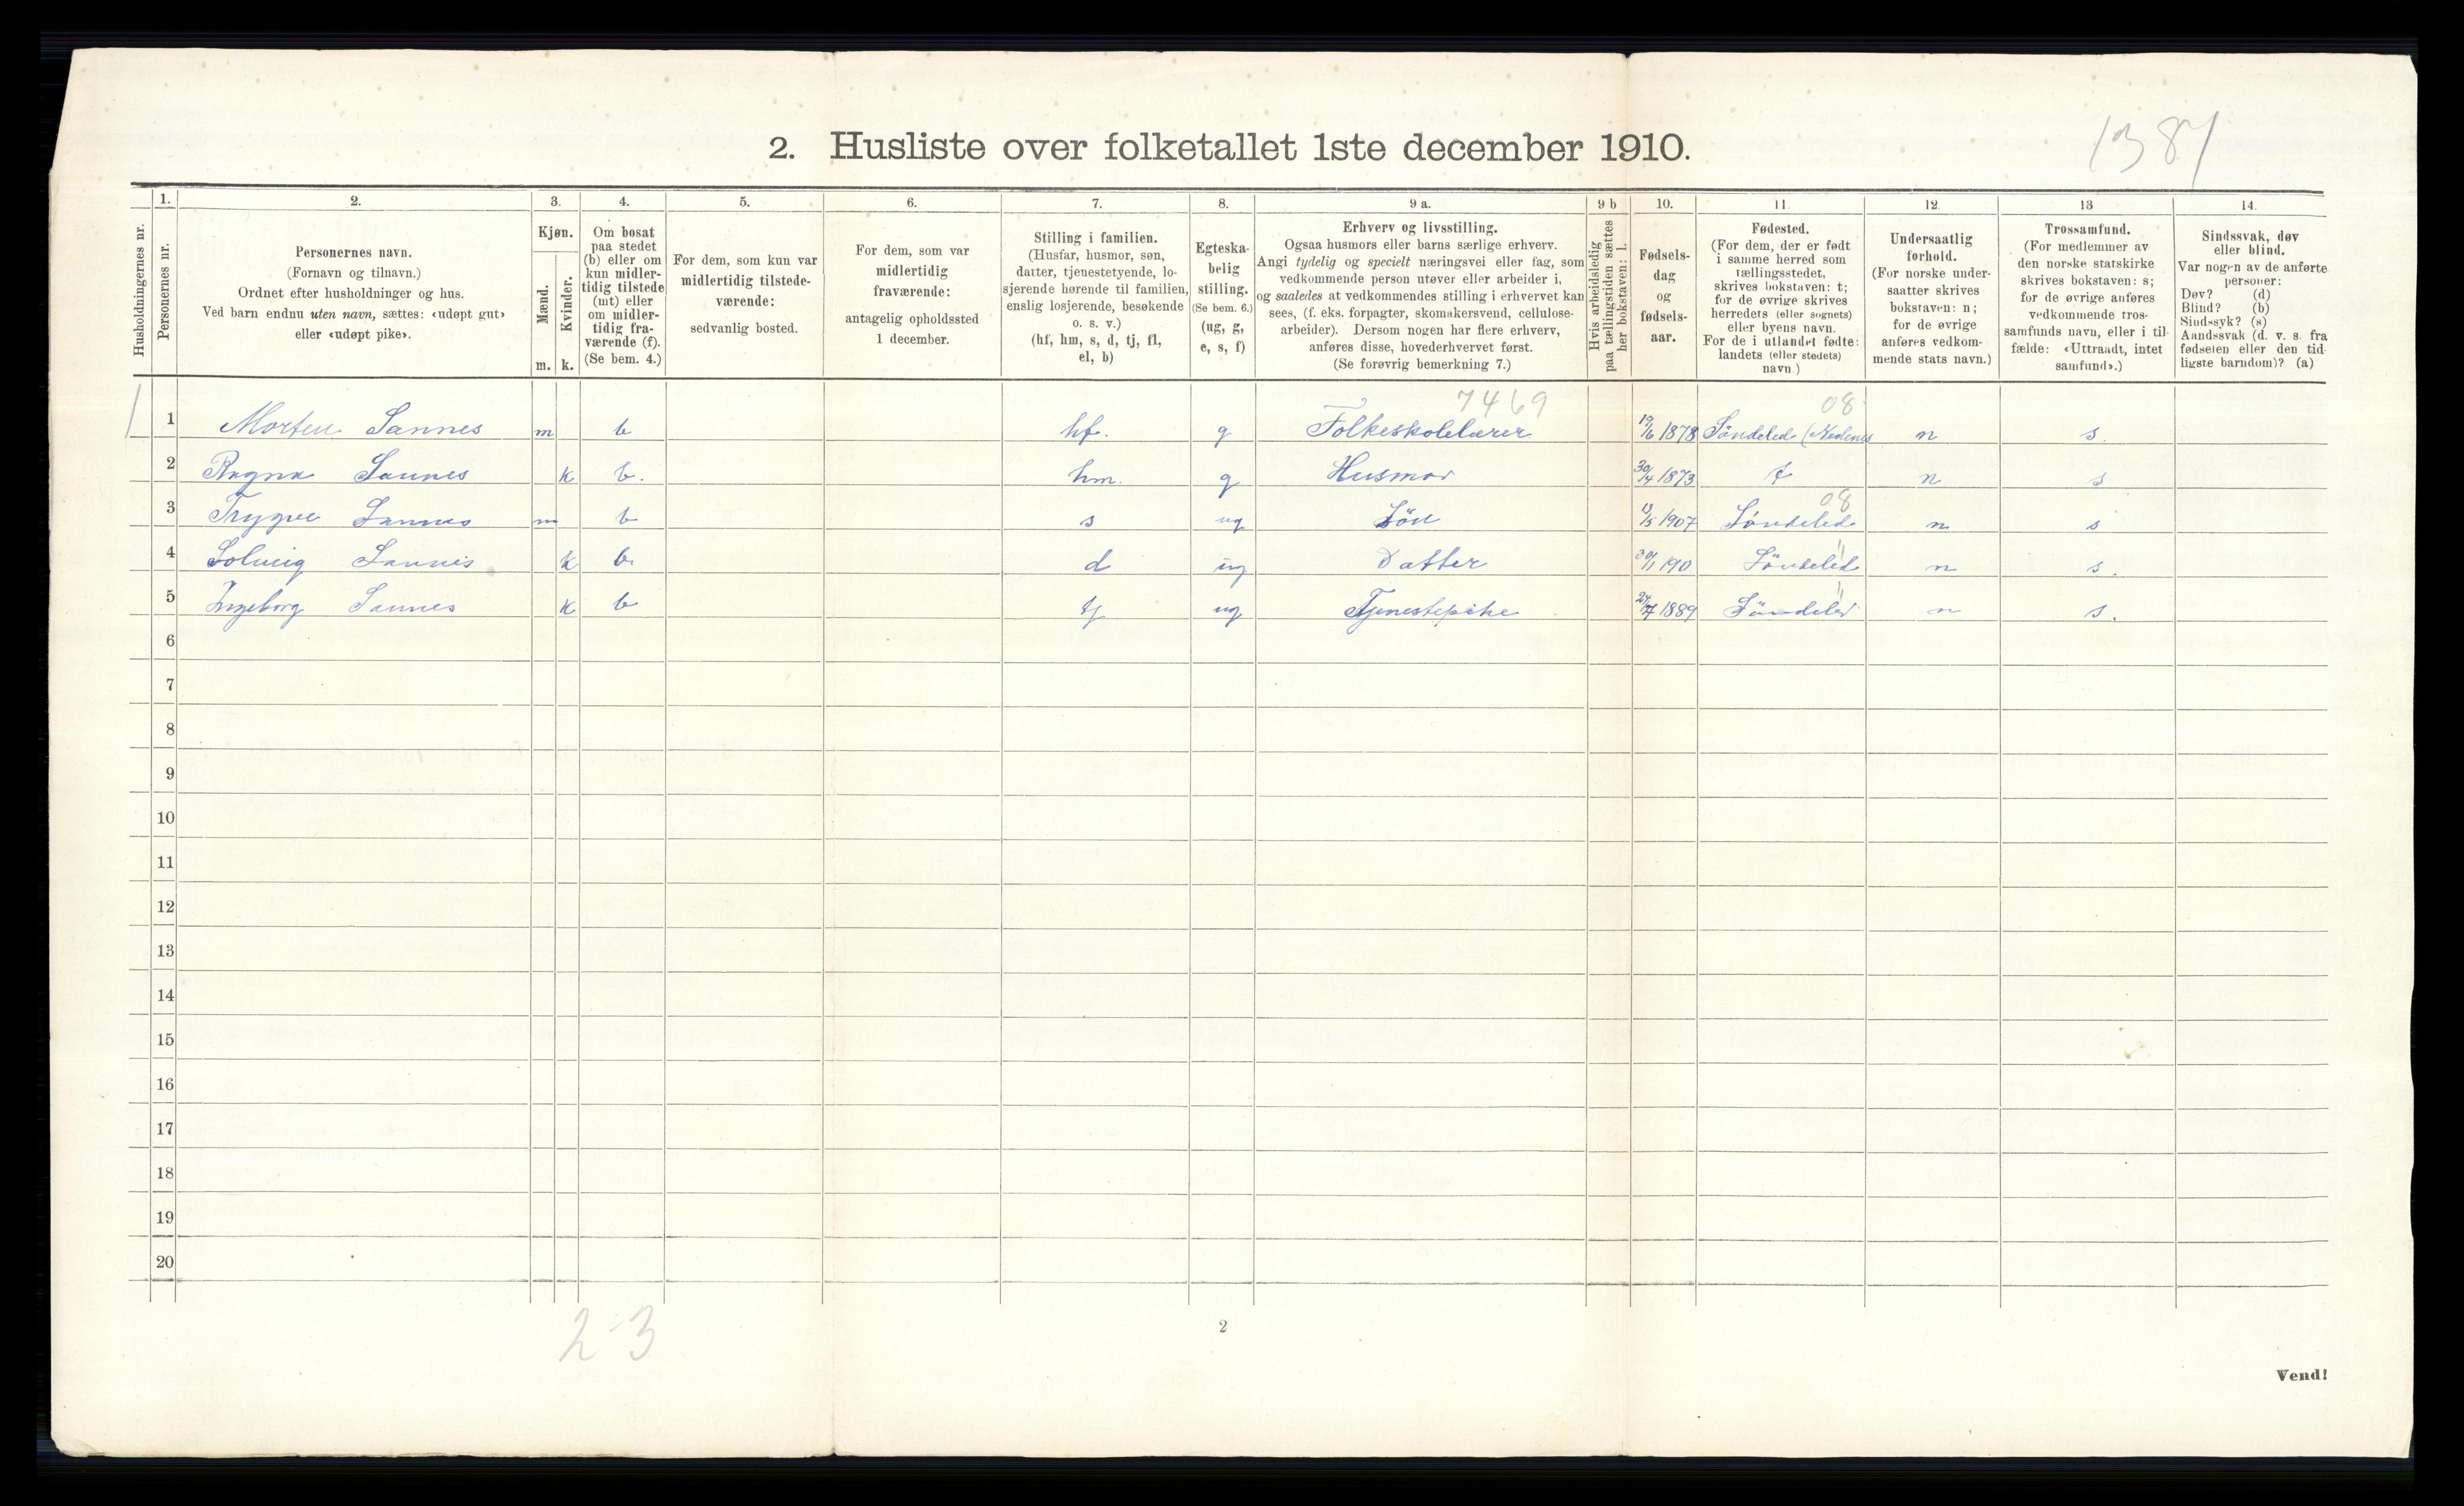 1387
2. Husliste over folketallet 1ste december 1910.
1. 2. 3. 4. 5. 6. 7. 8. 9 a. 9 b 10. 11. 12. 13 14.
Husholdningernes nr.
Personernes nr.
Personernes navn.
(Fornavn og tilnavn.)
Ordnet efter husholdninger og hus.
Ved barn endnu uten navn, sættes: «udøpt gut»
eller «udøpt pike».
Kjøn.
Mænd.
Kvinder.
m. k.
Om bosat
paa stedet
(b) eller om
kun midler-
tidig tilstede
(mt) eller
om midler-
tidig fra-
værende (f).
(Se bem. 4.)
For dem, som kun var
midlertidig tilstede-
værende:
sedvanlig bosted.
For dem, som var
midlertidig
fraværende:
antagelig opholdssted
1 december.
Stilling i familien.
(Husfar, husmor, søn,
datter, tjenestetyende, lo-
sjerende hørende til familien,
enslig losjerende, besøkende
o. s. v.)
(hf, hm, s, d, tj, fl,
el, b)
Egteska-
belig
stilling.
(Se bem. 6.)
(ug, g,
e, s, f)
Erhverv og livsstilling.
Ogsaa husmors eller barns særlige erhverv.
Angi tydelig og specielt næringsvei eller fag, som
vedkommende person utøver eller arbeider i,
og saaledes at vedkommendes stilling i erhvervet kan
sees, (f. eks. forpagter, skomakersvend, cellulose-
arbeider). Dersom nogen har flere erhverv,
anføres disse, hovederhvervet først.
(Se forøvrig bemerkning 7.)
Hvis arbeidsledig
paa tællingstiden sættes
her bokstaven: l.
Fødsels-
dag
og
fødsels-
aar.
Fødested.
(For dem, der er født
i samme herred som
tællingsstedet,
skrives bokstaven: t;
for de øvrige skrives
herredets (eller sognets)
eller byens navn.
For de i utlandet fødte:
landets (eller stedets)
navn.)
Undersaatlig
forhold.
(For norske under-
saatter skrives
bokstaven: n;
for de øvrige
anføres vedkom-
mende stats navn.)
Trossamfund.
(For medlemmer av
den norske statskirke
skrives bokstaven: s;
for de øvrige anføres
vedkommende tros-
samfunds navn, eller i til-
fælde: «Uttraadt, intet
samfund».)
Sindssvak, døv
eller blind.
Var nogen av de anførte
personer:
Døv? (d)
Blind? (b)
Sindssyk? (s)
Aandssvak (d. v. s. fra
fødselen eller den tid-
ligste barndom)? (a)
7469 08
1 1 Morten Sannes m b hf. g Folkeskolelærer 19/6 1878 Söndeled (Nedenes n s.
2 Ragna Sannes k b. hm. g Husmor 30/4 1873 t n s
08
3 Trygve Sannes m b s ug Sön 13/5 1907 Söndeled n s
4 Solveig Sannes k b. d ug Datter 30/1 190 Söndeled " n s.
5 Ingeborg Sannes k b tj ug Tjenestepike 24/7 1889 Söndeled " n s.
6
7
8
9
10
11
12
13
14
15
16
17
18
19
20
2-3
2
Vend!